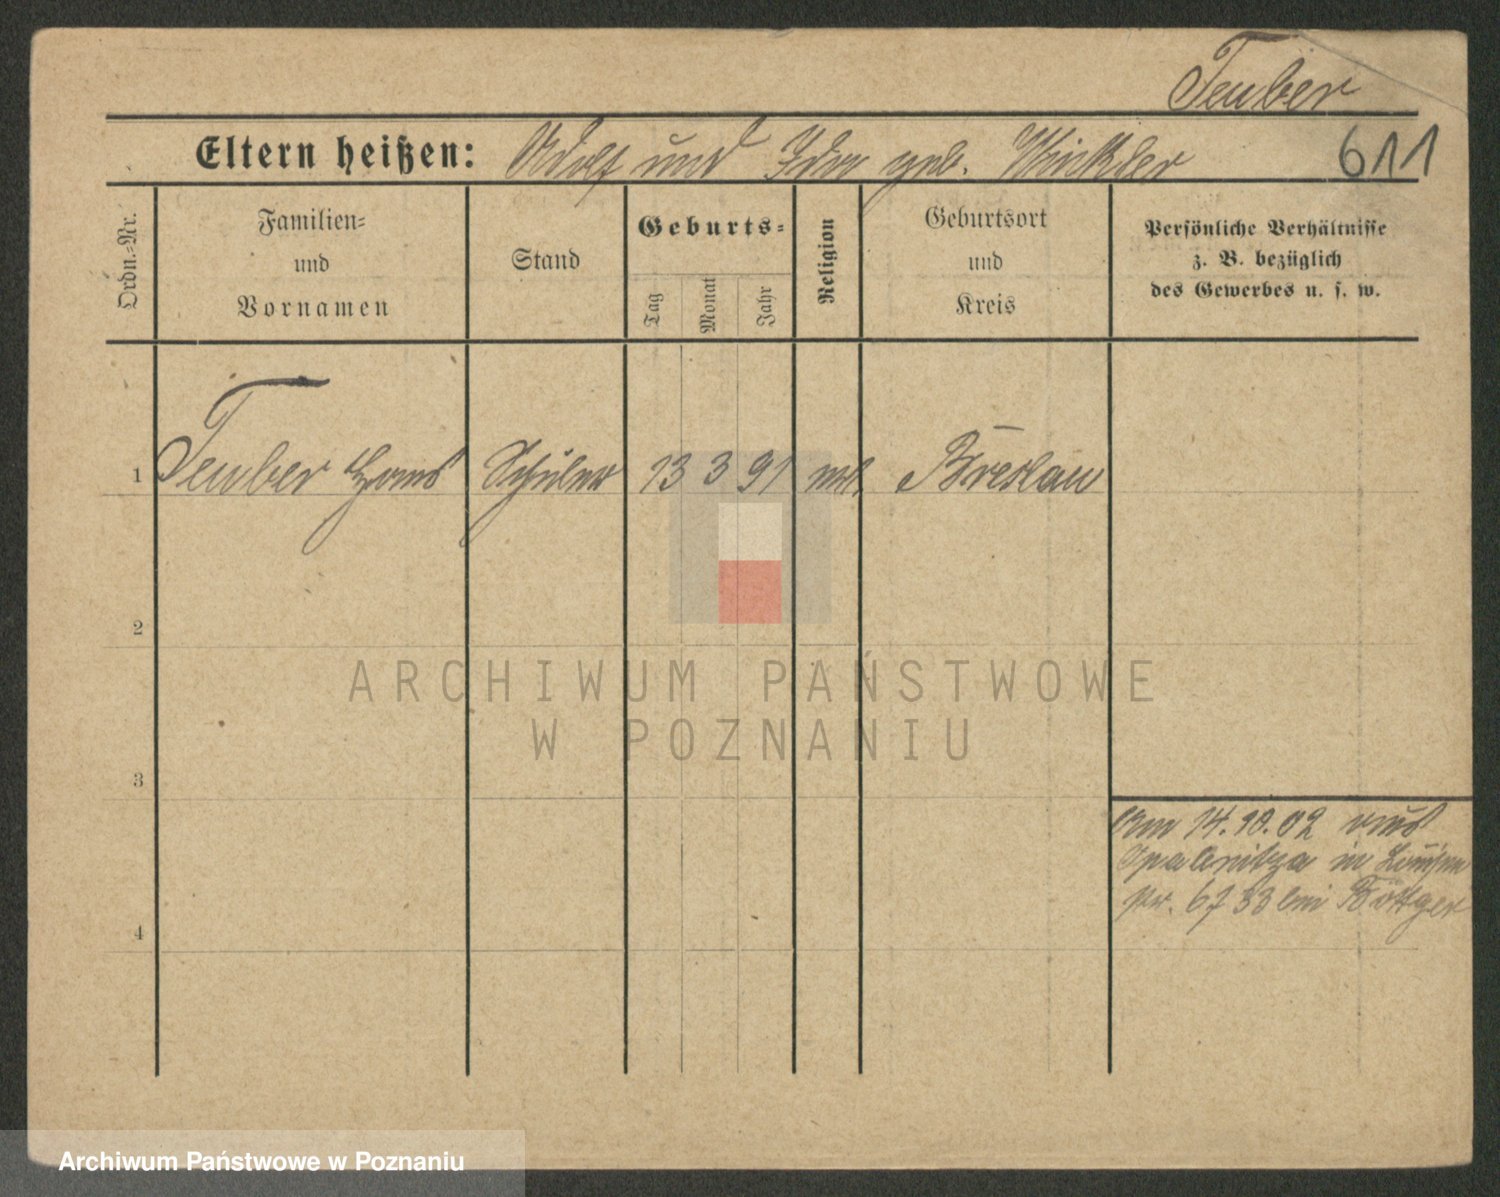 Teuber
Eltern heißen: Adolf und Ida geb. Winkler
611
Ordn.-Nr.
Familien-
und
Vornamen
Stand
Geburts-
Tag
Monat
Jahr
Religion
Geburtsort
und
Kreis
Persönliche Verhältnisse
z. B. bezüglich
des Gewerbes u. s. w.
1 Teuber Hans Schüler 13 3 91 Breslau
2
3
4
Am 14.10.02 aus
Opalenitza in Louisen
str. 67 33 bei Böttger
ARCHIWUM PAŃSTWOWE
W POZNANIU
Archiwum Państwowe w Poznaniu